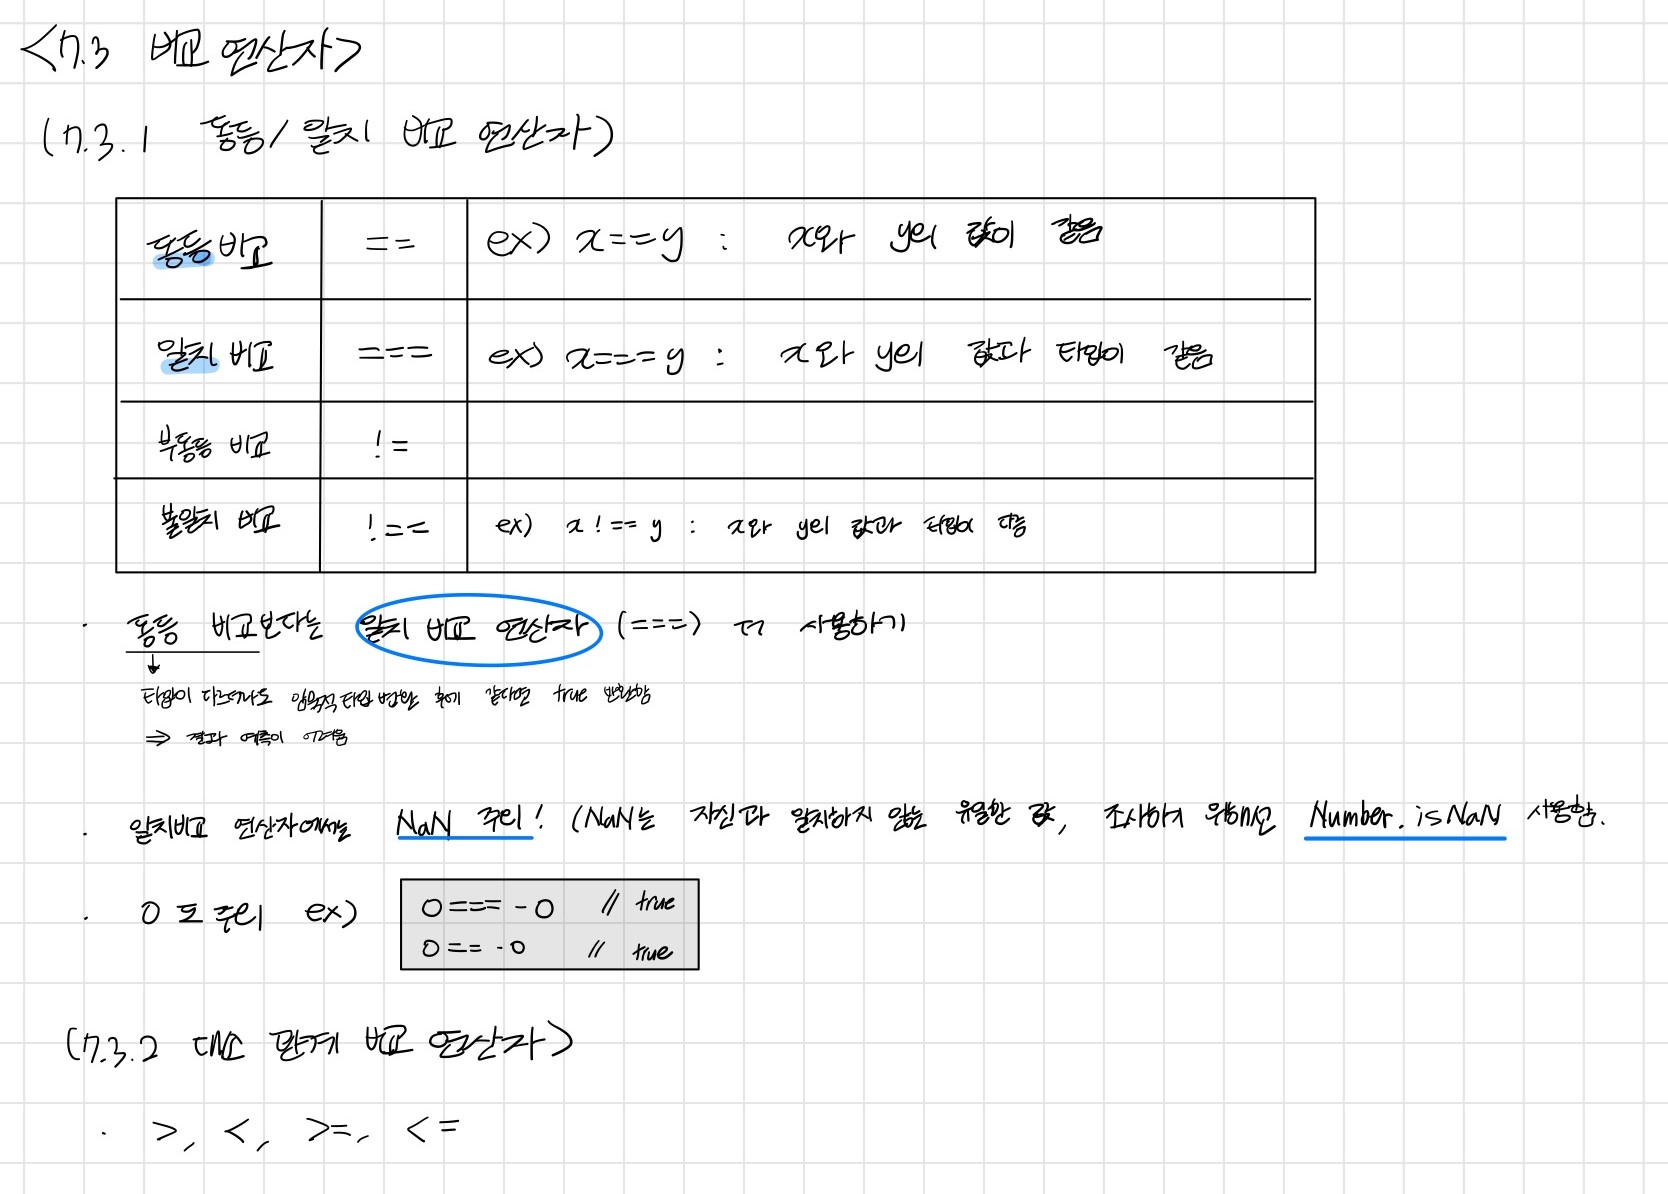 <7.3 비교 연산자>
(7.3.1 동등/일치 비교 연산자)
동등 비교 == ex) x==y : x와 y의 값이 같음
일치 비교 === ex) x===y : x와 y의 값과 타입이 같음
부동등 비교 !=
불일치 비교 !== ex) x!==y : x와 y의 값과 타입이 다름
· 동등 비교보다는 일치 비교 연산자 (===) 더 사용하기
↓
타입이 다르더라도 암묵적 타입 변환 후에 같다면 true 반환함
⇒ 결과 예측이 어려움
· 일치비교 연산자에서는 NaN 주의! (NaN는 자신과 일치하지 않는 유일한 값, 조사하기 위해선 Number.isNaN 사용함.
· 0도 주의 ex)
0 === -0 // true
0 == -0 // true
(7.3.2 대소 관계 비교 연산자)
· >, <, >=, <=